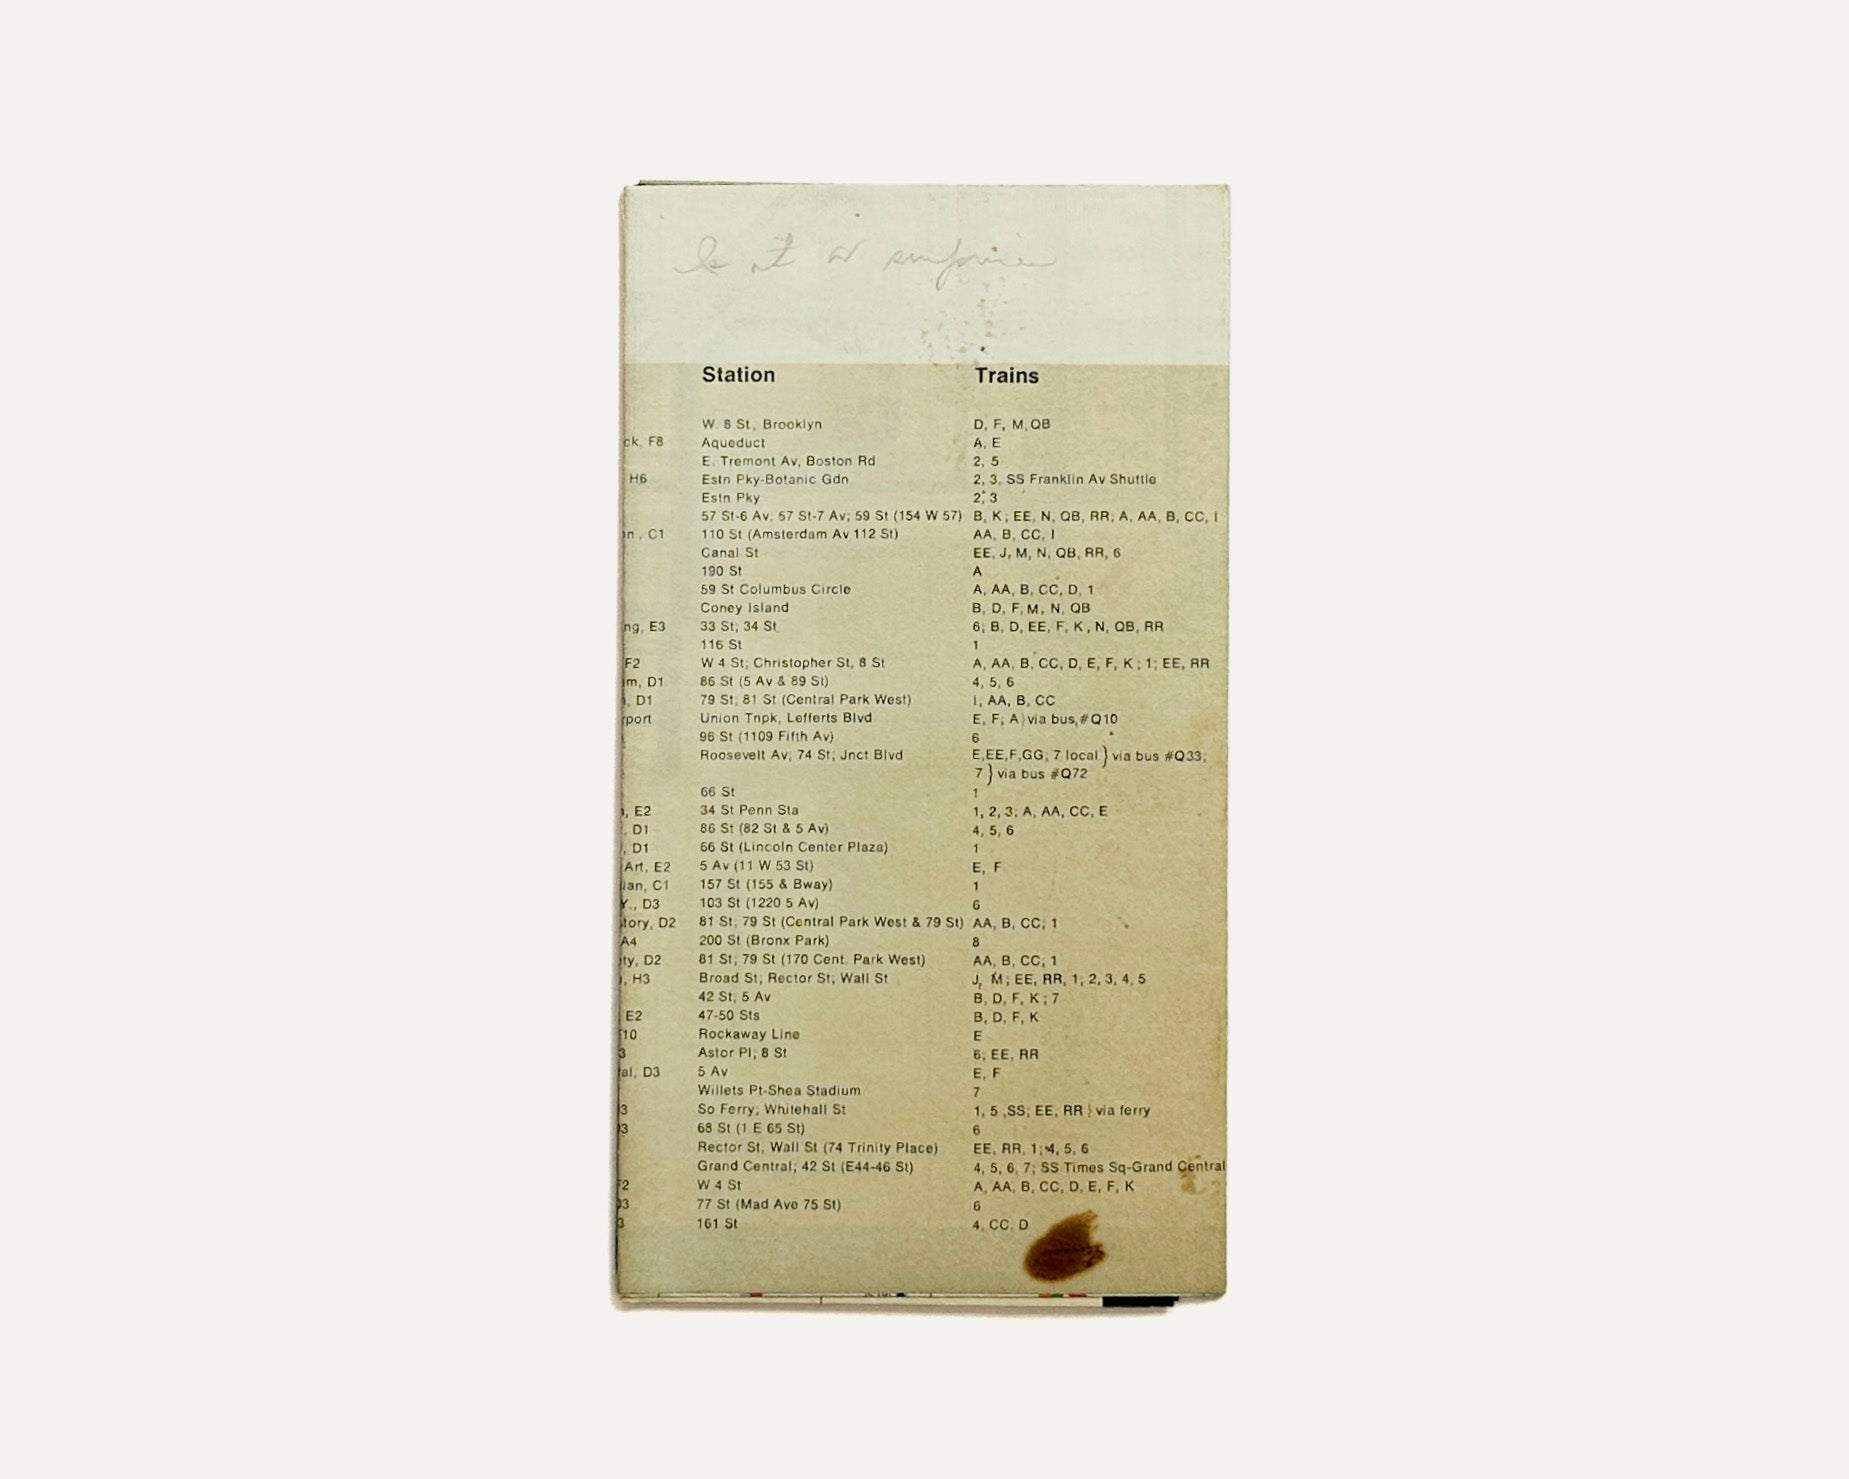 Station Trains
W. 8 St., Brooklyn D, F, M, QB
ck, F8 Aqueduct A, E
E. Tremont Av, Boston Rd 2, 5
H6 Estn Pky-Botanic Gdn 2, 3, SS Franklin Av Shuttle
Estn Pky 2, 3
57 St-6 Av; 57 St-7 Av; 59 St (154 W 57) B, K; EE, N, QB, RR; A, AA, B, CC, I
n, C1 110 St (Amsterdam Av 112 St) AA, B, CC, I
Canal St EE, J, M, N, QB, RR, 6
190 St A
59 St Columbus Circle A, AA, B, CC, D, 1
Coney Island B, D, F, M, N, QB
ng, E3 33 St; 34 St 6; B, D, EE, F, K, N, QB, RR
116 St 1
F2 W 4 St; Christopher St, 8 St A, AA, B, CC, D, E, F, K; 1; EE, RR
m, D1 86 St (5 Av & 89 St) 4, 5, 6
, D1 79 St; 81 St (Central Park West) I; AA, B, CC
rport Union Tnpk, Lefferts Blvd E, F; A } via bus #Q10
96 St (1109 Fifth Av) 6
Roosevelt Av; 74 St; Jnct Blvd E,EE,F,GG; 7 local } via bus #Q33;
7 } via bus #Q72
66 St 1
, E2 34 St Penn Sta 1, 2, 3; A, AA, CC, E
, D1 86 St (82 St & 5 Av) 4, 5, 6
, D1 66 St (Lincoln Center Plaza) 1
Art, E2 5 Av (11 W 53 St) E, F
ian, C1 157 St (155 & Bway) 1
Y., D3 103 St (1220 5 Av) 6
tory, D2 81 St; 79 St (Central Park West & 79 St) AA, B, CC; 1
A4 200 St (Bronx Park) 8
ty, D2 81 St; 79 St (170 Cent. Park West) AA, B, CC; 1
, H3 Broad St; Rector St; Wall St J, M; EE, RR, 1; 2, 3, 4, 5
42 St; 5 Av B, D, F, K; 7
E2 47-50 Sts B, D, F, K
F10 Rockaway Line E
3 Astor Pl; 8 St 6; EE, RR
al, D3 5 Av E, F
Willets Pt-Shea Stadium 7
3 So Ferry; Whitehall St 1, 5, SS; EE, RR } via ferry
3 68 St (1 E 65 St) 6
Rector St, Wall St (74 Trinity Place) EE, RR, 1; 4, 5, 6
Grand Central; 42 St (E44-46 St) 4, 5, 6, 7; SS Times Sq-Grand Central
F2 W 4 St A, AA, B, CC, D, E, F, K
D3 77 St (Mad Ave 75 St) 6
3 161 St 4, CC, D